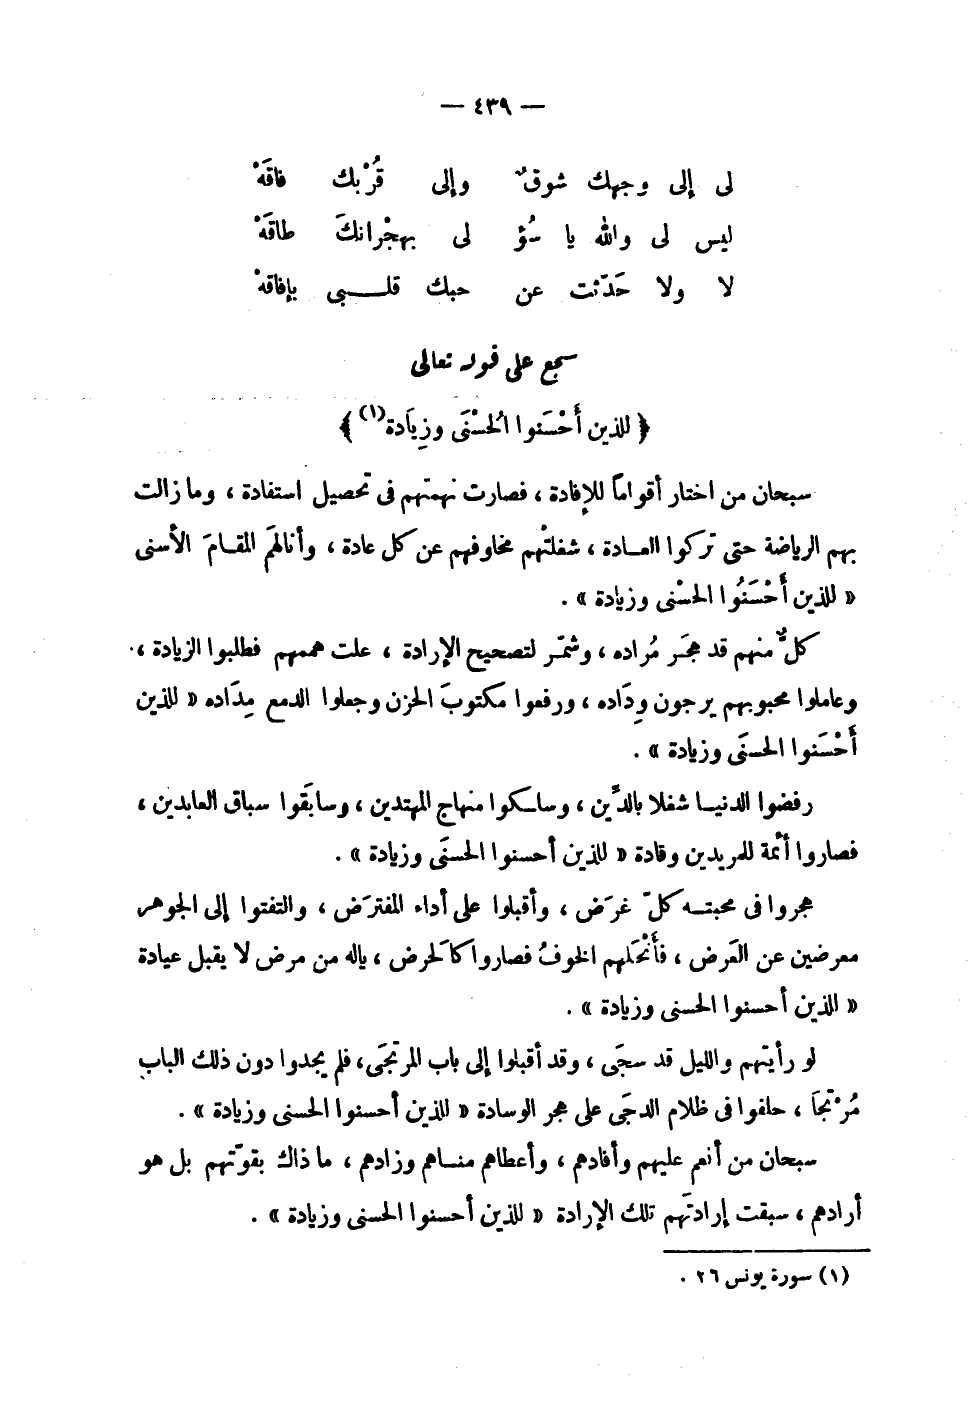 — ٤٣٩ —
لى إلى وجهك شوقٌ وإلى قُرْبك فاقَهْ
ليس لى والله يا سُؤ لى بهجْرانكَ طاقَهْ
لا ولا حَدّثت عن حبك قلـــبى بإفاقهْ
سجع على قوله تعالى
﴿ للذين أَحْسَنوا الُحسْنَى وزِيَادة(١) ﴾
سبحان من اختار أقواماً للإفادة ، فصارت نهمتهم فى تحصيل استفادة ، وما زالت
بهم الرياضة حتى تركوا العـادة ، شغلتْهم مخاوفهم عن كل عادة ، وأنالهَم المقـامَ الأسنى
« للذين أَحْسَنُوا الحسْنى وزيادة » .
كلٌّ منهم قد هجَر مُراده ، وشمّر لتصحيح الإرادة ، علت هممهم فطلبوا الزيادة ،
وعاملوا محبوبهم يرجون وِدَاده ، ورفعوا مكتوبَ الحزن وجعلوا الدمع مِدَاده « للذين
أَحْسَنوا الحسنَى وزيادة » .
رفضوا الدنيـا شغلا بالدَّين ، وسلـكوا منهاج المهتدين ، وسابَقوا سباق العابدين ،
فصاروا أئمة للمريدين وقادة « للذين أحسنوا الحسنَى وزيادة » .
هجروا فى محبتـه كلّ غرَض ، وأقبلوا على أداء المفترَض ، والتفتوا إلى الجوهر
معرضين عن العَرض ، فأَنْحَلهم الخوفُ فصاروا كالَحرض ، ياله من مرض لا يقبل عيادة
« الذين أحسنوا الحسنى وزيادة » .
لو رأيتَهم والليل قد سجَى ، وقد أقبلوا إلى باب المرتجَى، فلم يجدوا دون ذلك الباب
مُرْتجَا ، حلفوا فى ظلام الدجَى على هجر الوسادة « للذين أحسنوا الحسنى وزيادة » .
سبحان من أنعم عليهم وأفادهم ، وأعطاهم منـاهم وزادهم ، ما ذاك بقوّتهم بل هو
أرادهم ، سبقت إرادتَهم تلك الإرادة « للذين أحسنوا الحسنى وزيادة » .
(١) سورة يونس ٢٦ .